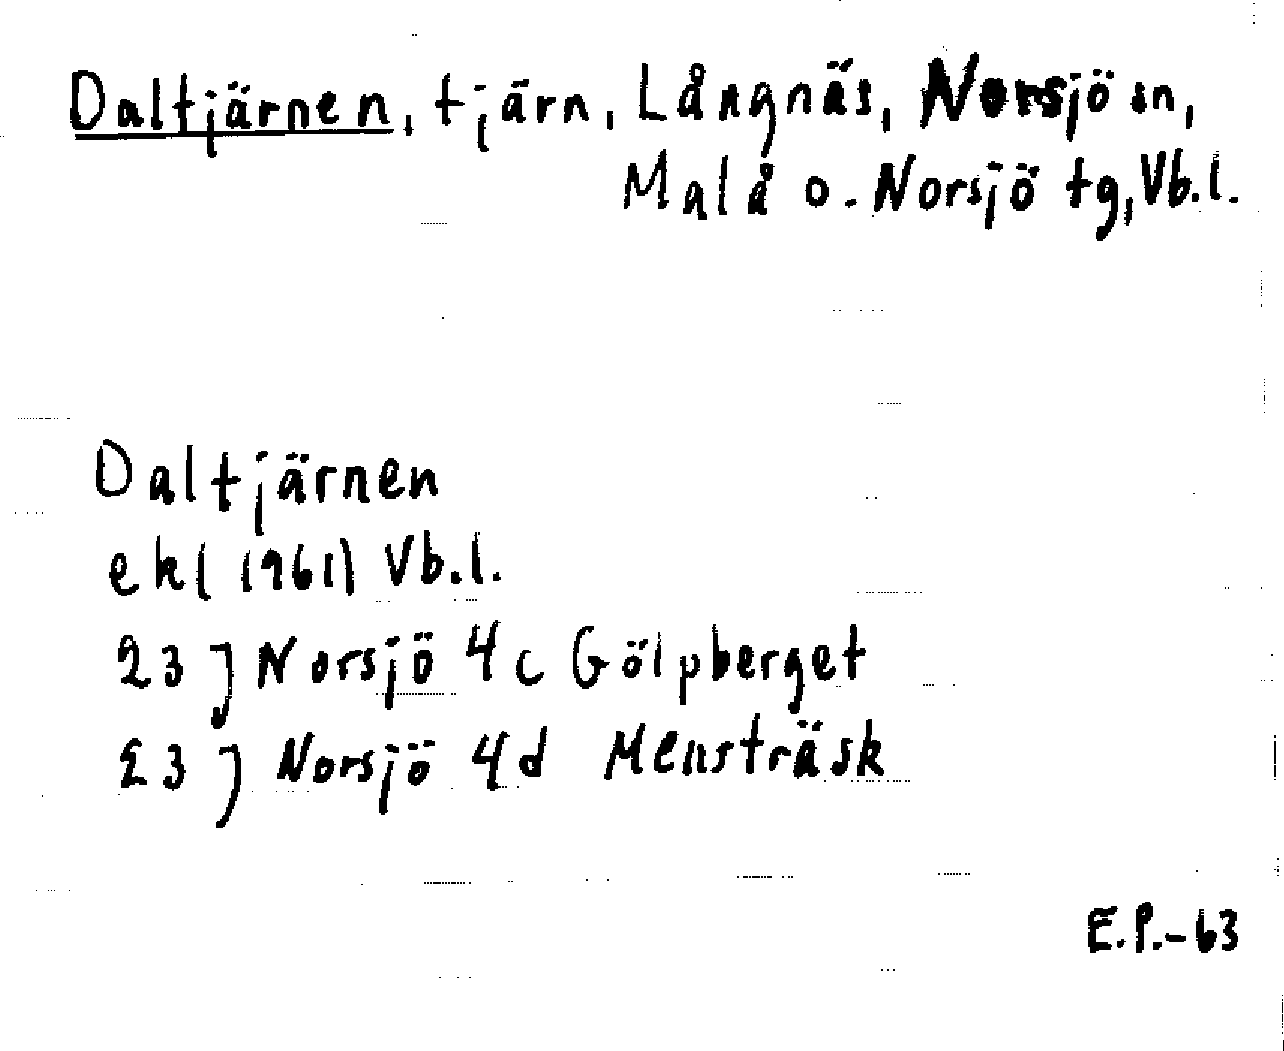 Daltjärnen, tjärn, Långnäs, Norsjö sn,
Malå o. Norsjö tg, Vb.l.
Daltjärnen
ekl (1961) Vb.l.
23 J Norsjö 4c Gölpberget
23 J Norsjö 4d Mensträsk
E.P.-63